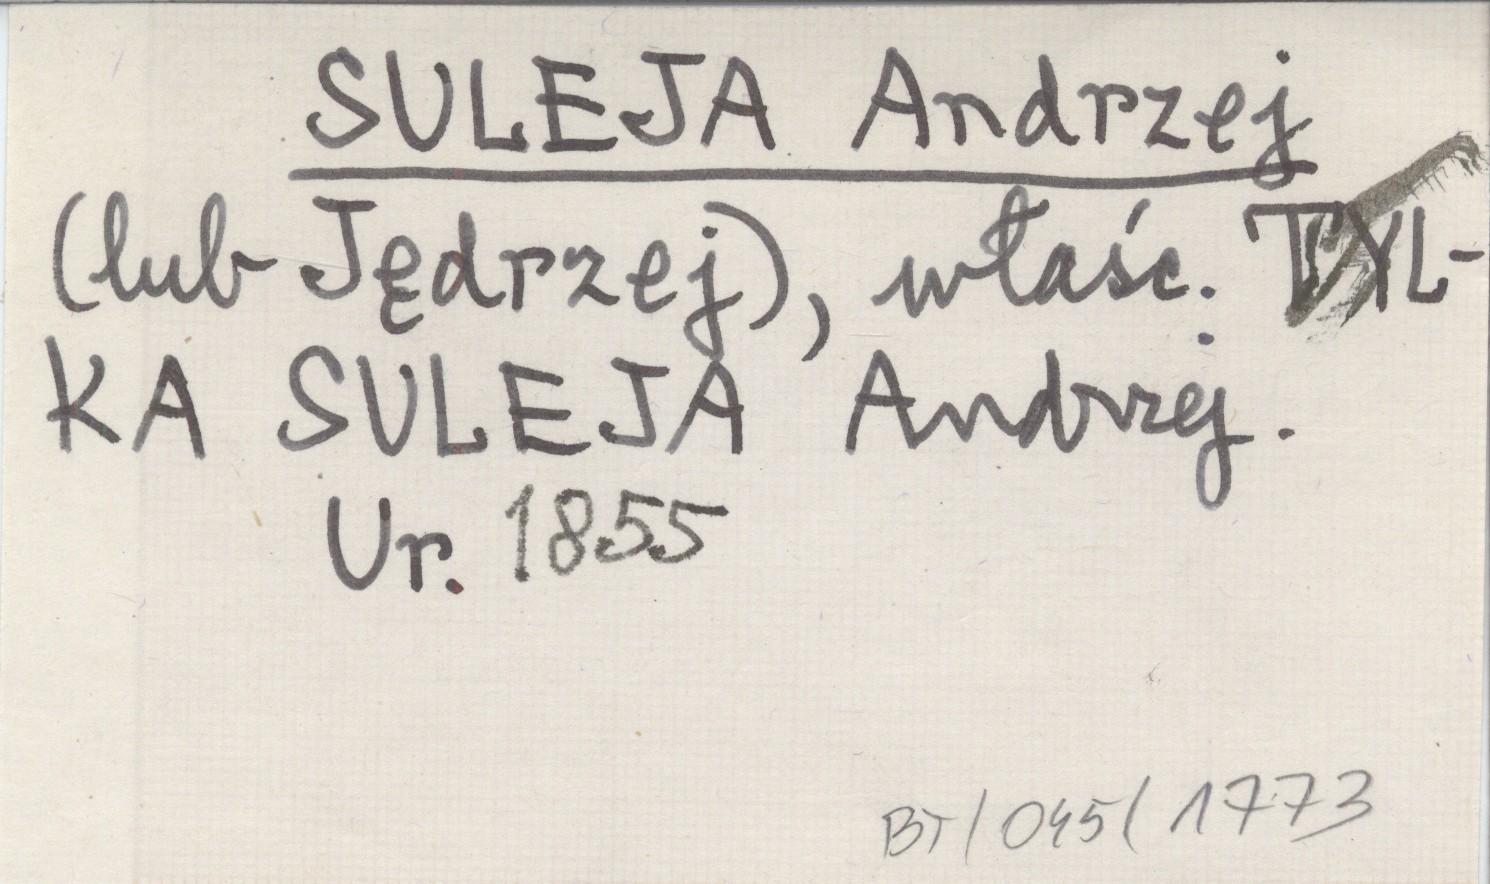 SULEJA Andrzej
(lub Jędrzej), właśc. TYL-
KA SULEJA Andrzej.
Ur. 1855
BT/045/1773